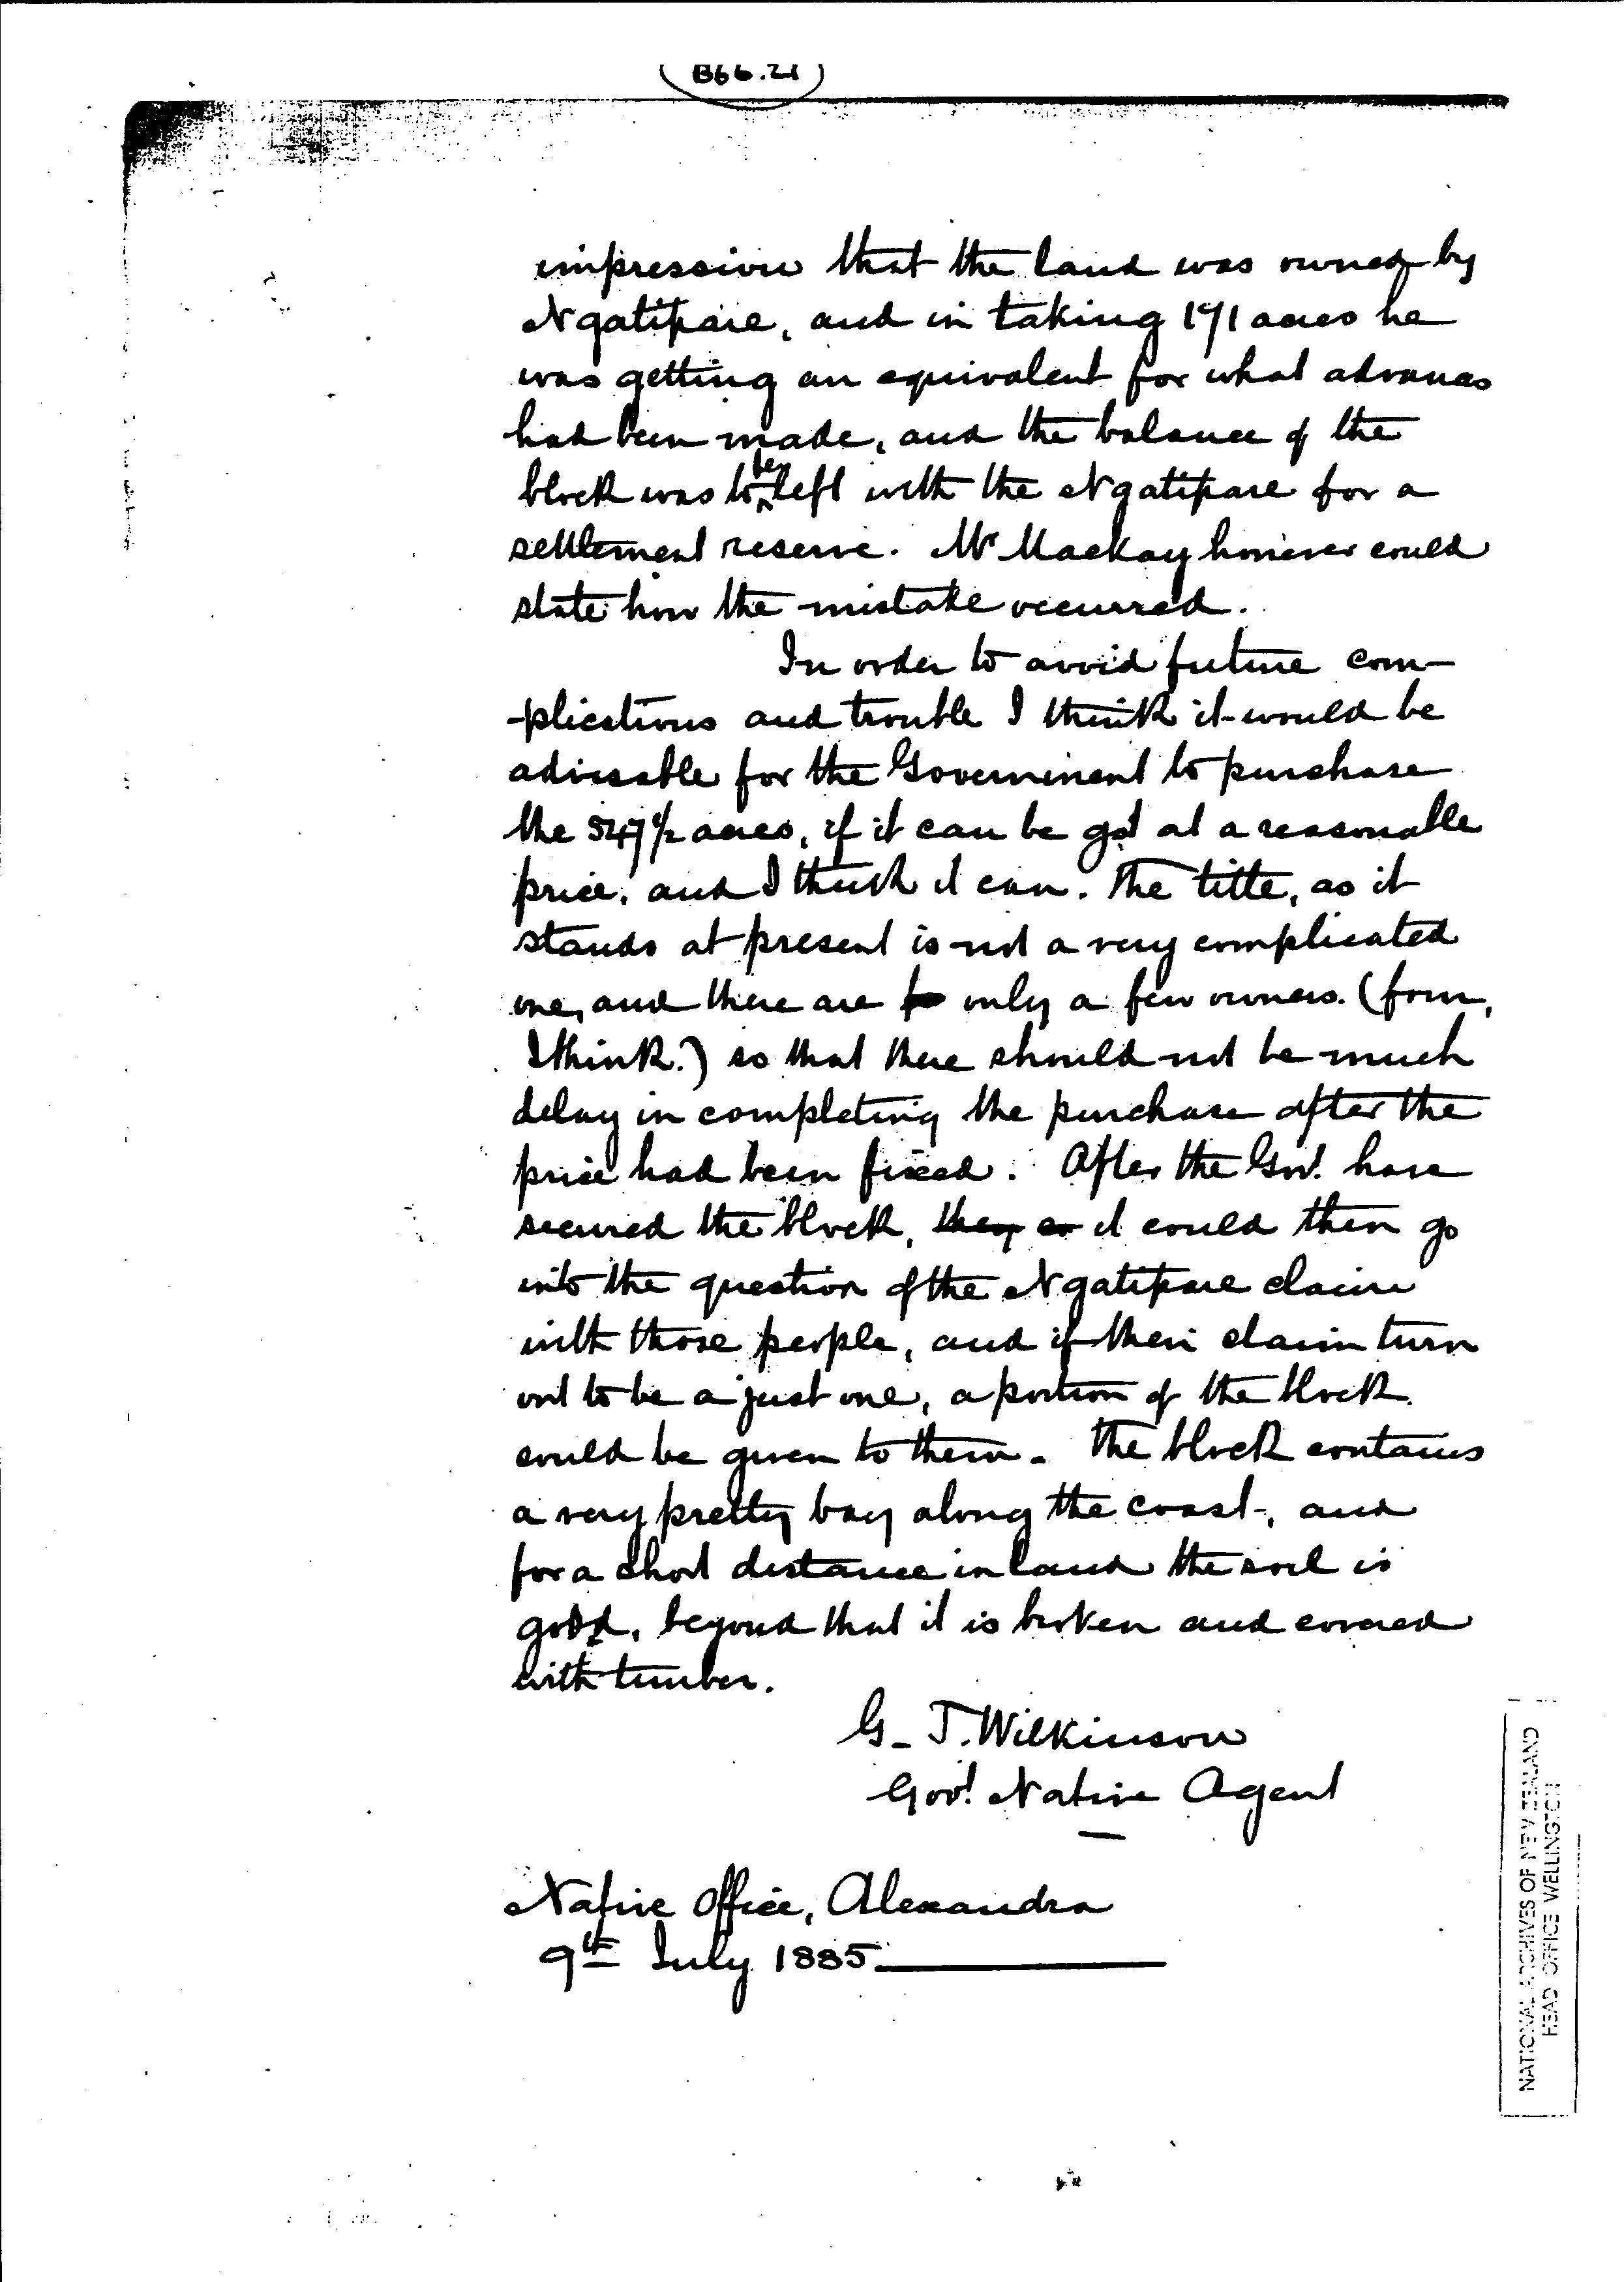 B66.21
impression that the land was owned by
Ngatipare, and in taking 171 acres he
was getting an equivalent for what advances
had been made, and the balance of the
block was to be left with the Ngatipare for a
settlement reserve. Mr Mackay however could
state how the mistake occurred.
In order to avoid future com-
-plications and trouble I think it would be
advisable for the Government to purchase
the 547½ acres, if it can be got at a reasonable
price, and I think it can. The title, as it
stands at present is not a very complicated
one, and there are only a few owners. (four,
I think.) so that there should not be much
delay in completing the purchase after the
price had been fixed. After the Govt. have
secured the block, they co it could then go
into the question of the Ngatipare claim
with those people, and if their claim turn
out to be a just one, a portion of the block
could be given to them. The block contains
a very pretty bay along the coast, and
for a short distance inland the soil is
good, beyond that it is broken and covered
with timber.
G. T. Wilkinson
Govt. Native Agent
Native Office, Alexandra
9th July 1885
NATIONAL ARCHIVES OF NEW ZEALAND
HEAD OFFICE WELLINGTON